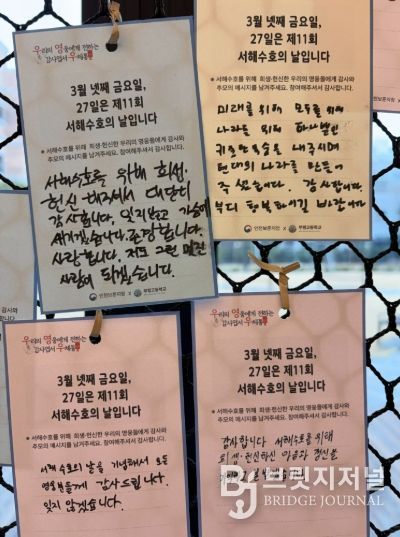 우리의 영웅에게 전하는
감사엽서 우체통
3월 넷째 금요일,
27일은 제11회
서해수호의 날입니다
● 서해수호를 위해 희생·헌신한 우리의 영웅들에게 감사와
추모의 메시지를 남겨주세요. 참여해주셔서 감사합니다.
서해수호를 위해 희생,
헌신 해주셔서 대단히
감사합니다. 잊지않고 가슴에
새기겠습니다. 존경합니다.
사랑합니다. 저도 그런 멋진
사람이 되겠습니다.
인천보훈지청 X 부평고등학교
3월 넷째 금요일,
27일은 제11회
서해수호의 날입니다
● 서해수호를 위해 희생·헌신한 우리의 영웅들에게 감사와
추모의 메시지를 남겨주세요. 참여해주셔서 감사합니다.
미래를 위해 모두를 위해
나라를 위해 하나뿐인
귀중한 목숨을 내주시며
현대의 나라를 만들어
주셨습니다. 감사합니다.
부디 행복하시길 바랍니다
인천보훈지청 X 부평고등학교
우리의 영웅에게 전하는
감사엽서 우체통
3월 넷째 금요일,
27일은 제11회
서해수호의 날입니다
● 서해수호를 위해 희생·헌신한 우리의 영웅들에게 감사와
추모의 메시지를 남겨주세요. 참여해주셔서 감사합니다.
서해 수호의 날을 기념해서 모든
영웅분들께 감사드립니다.
잊지 않겠습니다.
우리의 영웅에게 전하는
감사엽서 우체통
3월 넷째 금요일,
27일은 제11회
서해수호의 날입니다
● 서해수호를 위해 희생·헌신한 우리의 영웅들에게 감사와
추모의 메시지를 남겨주세요. 참여해주셔서 감사합니다.
감사합니다 서해수호를 위해
희생, 헌신하신 마음과 정신을
BJ 브릿지저널
BRIDGE JOURNAL